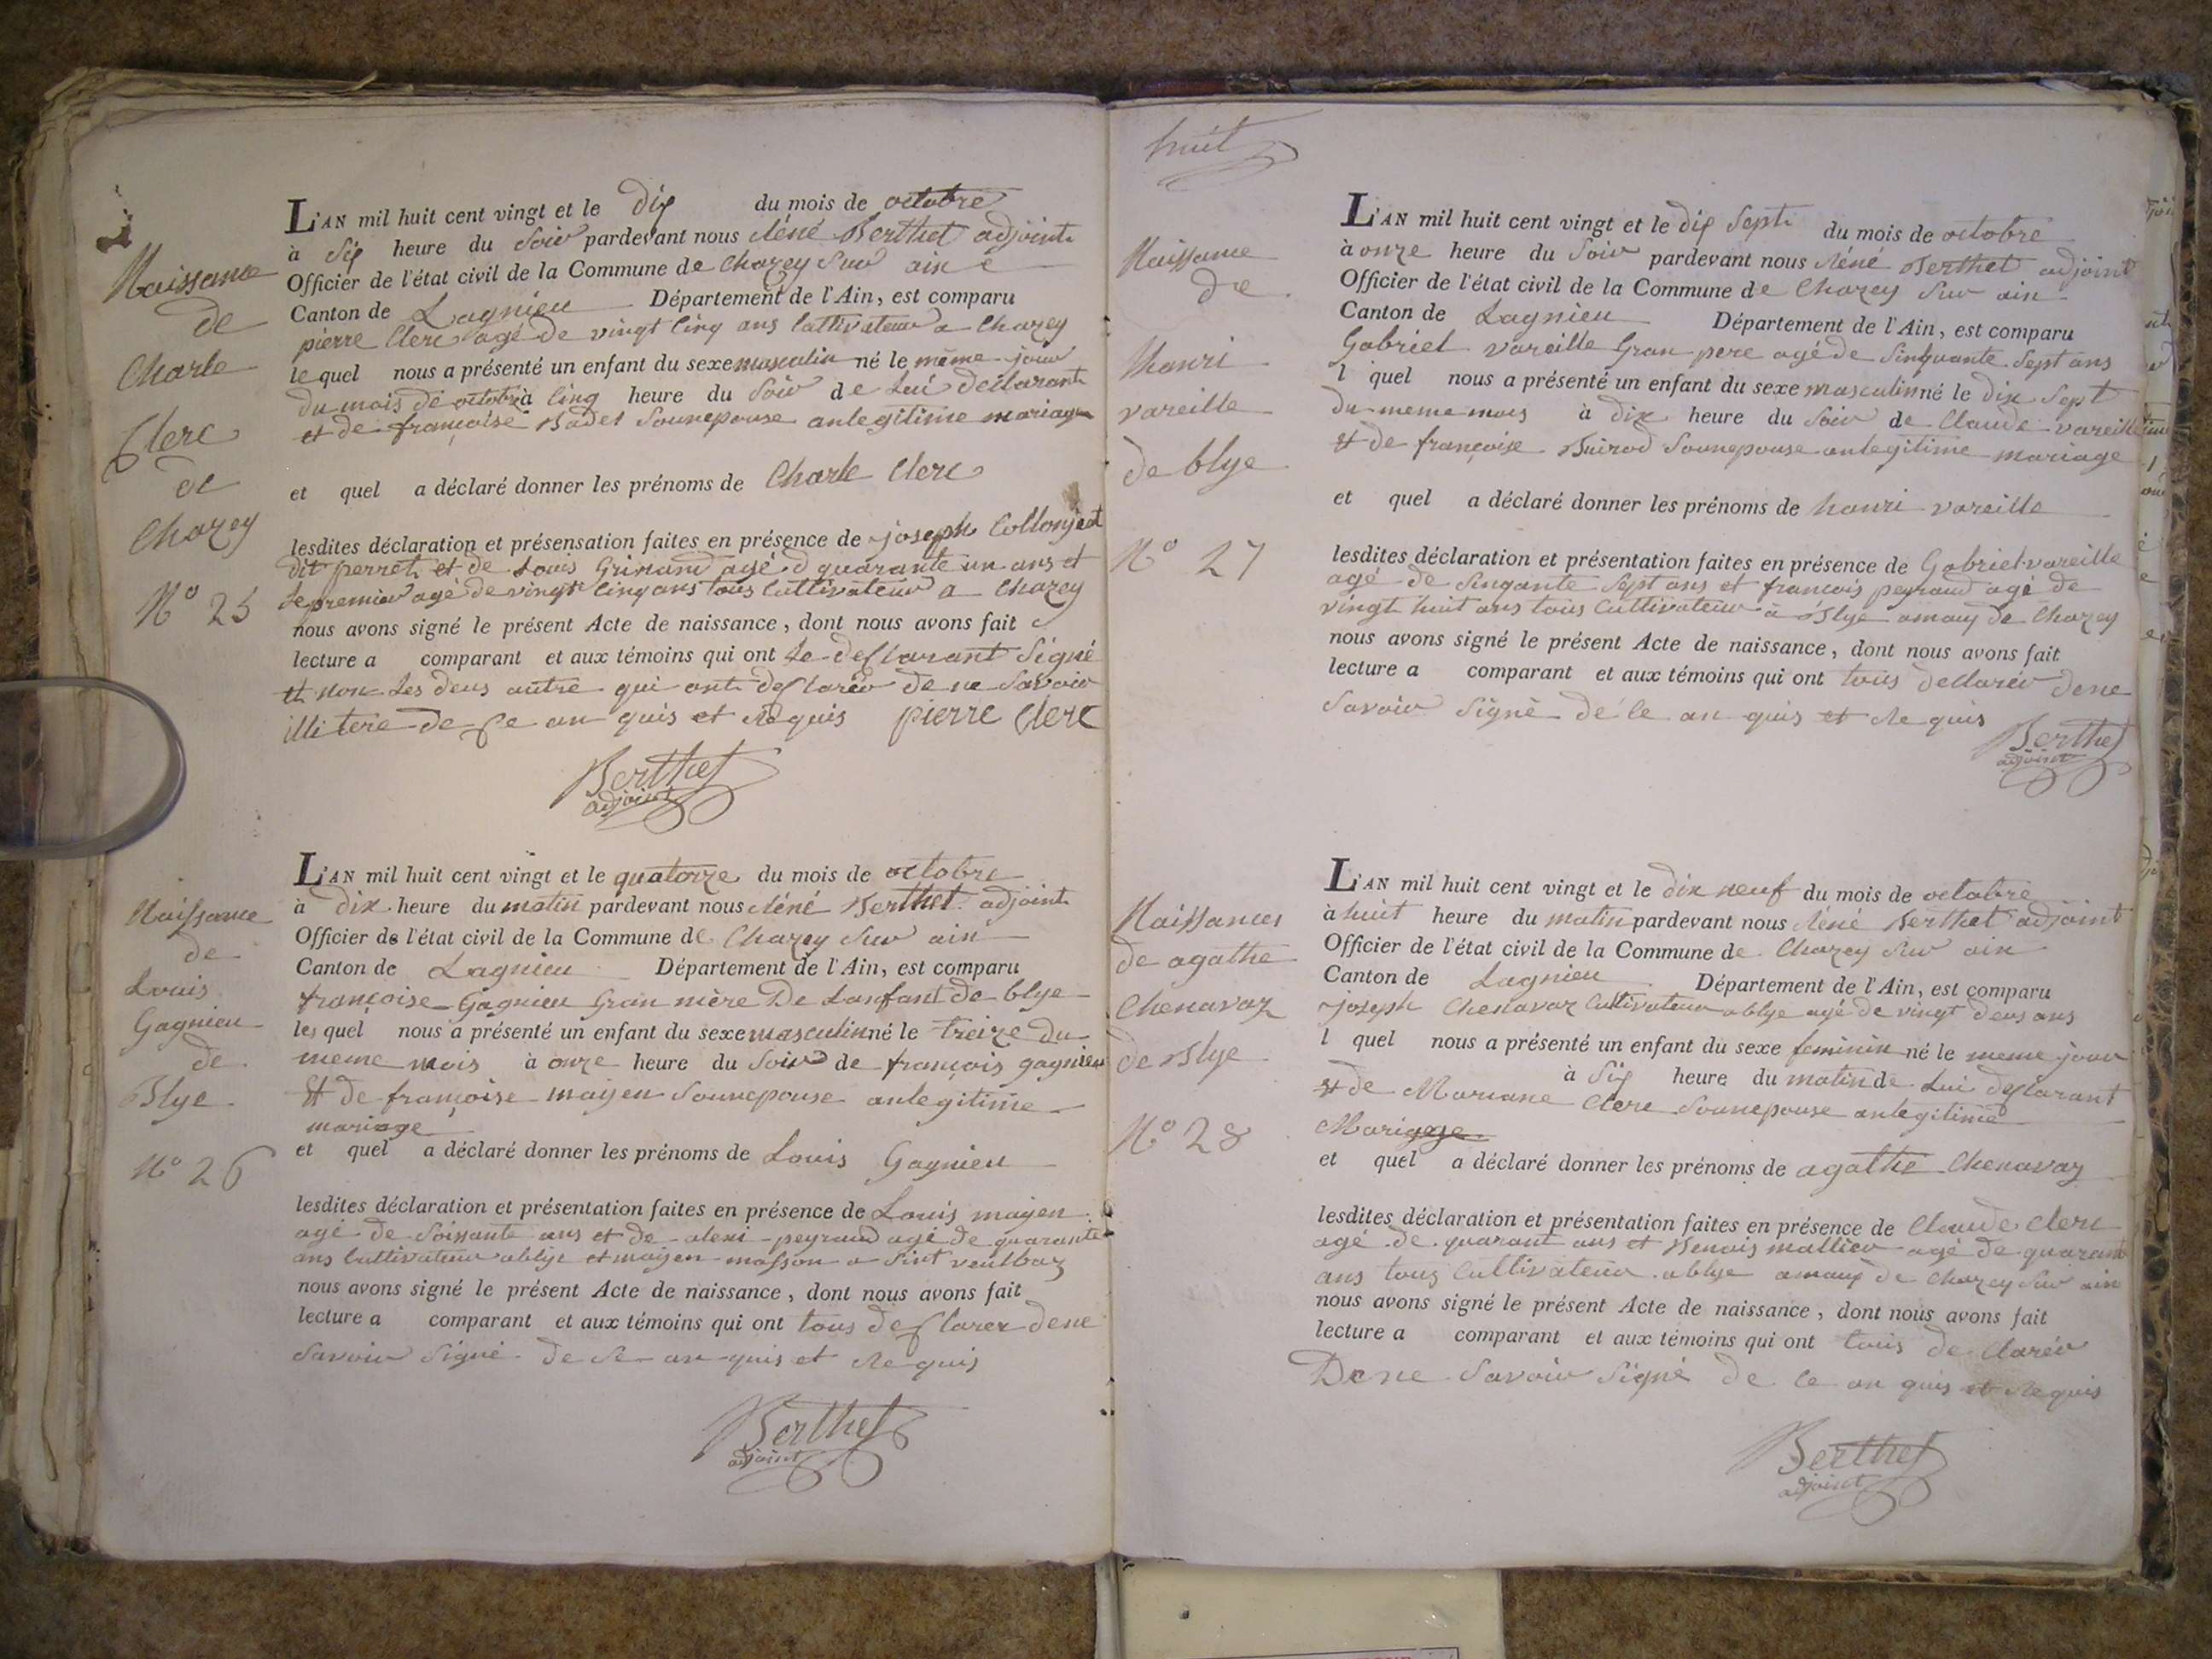 Naissance
de
Charle
Clerc
de
Chazey
N° 25
L'AN mil huit cent vingt et le dix du mois de octobre
à six heure du Soir pardevant nous réné Berthet adjoint
Officier de l'état civil de la Commune de Chazey Sur ain
Canton de Lagnieu Département de l'Ain, est comparu
pierre Clerc agé de vingt Cinq ans Cultivateur a Chazey
le quel nous a présenté un enfant du sexe masculin né le même jour
du mois de octobre à Cinq heure du Soir de Lui declarant
et de françoise Bader Sounepouse anlegitime mariage
et quel a déclaré donner les prénoms de Charle Clerc
lesdites déclaration et présensation faites en présence de joseph Collonjeat
dit perret et de Louis Grinand agé d quarante un ans et
le premier agé de vingt Cinq ans tous Cultivateur a Chazey
nous avons signé le présent Acte de naissance, dont nous avons fait
lecture a comparant et aux témoins qui ont Le declarant Signé
et non Les deus autre qui ont declarév de ne Savoir
illitere de ce an quis et requis pierre Clerc
Berthet
adjoint
Naissance
de
Louis
Gagnieu
de
Blye
N° 26
L'AN mil huit cent vingt et le quatorze du mois de octobre
à dix heure du matin pardevant nous réné Berthet adjoint
Officier de l'état civil de la Commune de Chazey Sur ain
Canton de Lagnieu Département de l'Ain, est comparu
françoise Gagnieu Gran mère De Lanfant de blye
les quel nous a présenté un enfant du sexe masculin né le treize du
meme mois à onze heure du Soir de françois gagnieu
Et de françoise mayen Sounepouse anlegitime
mariage
et quel a déclaré donner les prénoms de Louis Gagnieu
lesdites déclaration et présentation faites en présence de Louis mayen
agé de Soissante ans et de alexi peyraud agé de quarante
ans Cultivateur ablye et mayen masson a Sint veulbaz
nous avons signé le présent Acte de naissance, dont nous avons fait
lecture a comparant et aux témoins qui ont tous declarer dene
Savoir Signé de Se an quis et requis
Berthet
adjoint
huit
Naissance
de
hanri
vareille
de blye
N° 27
L'AN mil huit cent vingt et le dix Sept du mois de octobre
à onze heure du Soir pardevant nous réné Berthet adjoint
Officier de l'état civil de la Commune de Chazey Sur ain
Canton de Lagnieu Département de l'Ain, est comparu
Gabriel vareille Gran pere agé de Sinquante Sept ans
l quel nous a présenté un enfant du sexe masculin né le dix Sept
du meme mois à dix heure du Soir de Claude vareille
et de françoise Buirod Sounepouse anlegitime mariage
et quel a déclaré donner les prénoms de hanri vareille
lesdites déclaration et présentation faites en présence de Gabriel vareille
agé de Sinqante Sept ans et françois peyraud agé de
vingt huit ans tous Cultivateur à Blye amaux de Chazey
nous avons signé le présent Acte de naissance, dont nous avons fait
lecture a comparant et aux témoins qui ont tous declarév dene
Savoir Signé de Ce an quis et requis
Berthet
adjoint
Naissances
de agathe
Chenavaz
de Blye
N° 28
L'AN mil huit cent vingt et le dix neuf du mois de octobre
à huit heure du matin pardevant nous réné Berthet adjoint
Officier de l'état civil de la Commune de Chazey Sur ain
Canton de Lagnieu Département de l'Ain, est comparu
joseph Chenavaz Cultivateur ablye agé de vingt deus ans
l quel nous a présenté un enfant du sexe feminin né le meme jour
à Six heure du matin de Lui declarant
et de Mariane Clerc Sounepouse anlegitime
Mariage
et quel a déclaré donner les prénoms de agathe Chenavaz
lesdites déclaration et présentation faites en présence de Claude Clerc
agé de quarant ans et Benois mallier agé de quarant
ans tous Cultivateur ablye amaux de Chazey Sur ain
nous avons signé le présent Acte de naissance, dont nous avons fait
lecture a comparant et aux témoins qui ont tous de Clarév
Dene Savoir Signé de Ce an quis et requis
Berthet
adjoint